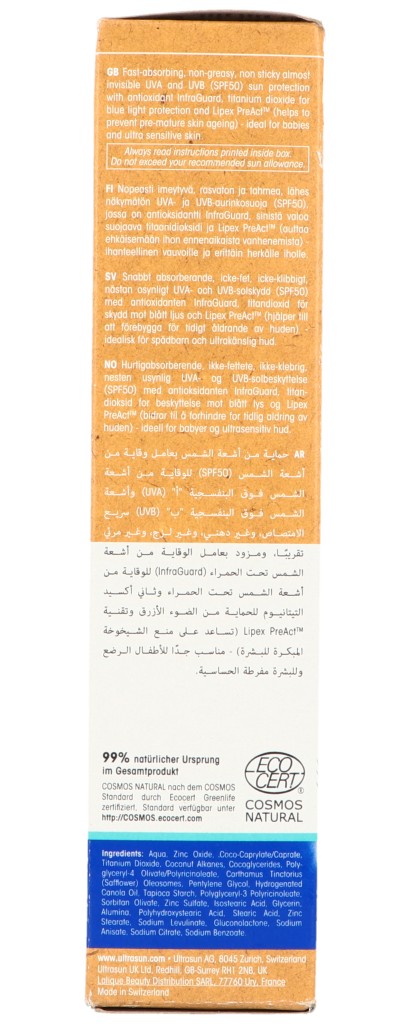 GB Fast-absorbing, non-greasy, non sticky almost
invisible UVA and UVB (SPF50) sun protection
with antioxidant InfraGuard, titanium dioxide for
blue light protection and Lipex PreAct™ (helps to
prevent pre-mature skin ageing) - ideal for babies
and ultra sensitive skin.
Always read instructions printed inside box.
Do not exceed your recommended sun allowance.
FI Nopeasti imeytyvä, rasvaton ja tahmea, lähes
näkymätön UVA- ja UVB-aurinkosuoja (SPF50),
jossa on antioksidantti InfraGuard, sinistä valoa
suojaava titaanidioksidi ja Lipex PreAct™ (auttaa
ehkäisemään ihon ennenaikaista vanhenemista) -
ihanteellinen vauvoille ja erittäin herkälle iholle.
SV Snabbt absorberande, icke-fet, icke-klibbigt,
nästan osynligt UVA- och UVB-solskydd (SPF50)
med antioxidanten InfraGuard, titandioxid för
skydd mot blått ljus och Lipex PreAct™ (hjälper till
att förebygga för tidigt åldrande av huden) -
idealisk för spädbarn och ultrakänslig hud.
NO Hurtigabsorberende, ikke-fettete, ikke-klebrig,
nesten usynlig UVA- og UVB-solbeskyttelse
(SPF50) med antioksidanten InfraGuard, titan-
dioksid for beskyttelse mot blått lys og Lipex
PreAct™ (bidrar til å forhindre for tidlig aldring av
huden) - ideell for babyer og ultrasensitiv hud.
AR حماية من أشعة الشمس بعامل وقاية من
أشعة الشمس (SPF50) للوقاية من أشعة
الشمس فوق البنفسجية "أ" (UVA) وأشعة
الشمس فوق البنفسجية "ب" (UVB) سريع
الامتصاص، وغير دهني، وغير لزج، وغير مرئي
تقريبًا، ومزود بعامل الوقاية من أشعة
الشمس تحت الحمراء (InfraGuard) للوقاية من
أشعة الشمس تحت الحمراء وثاني أكسيد
التيتانيوم للحماية من الضوء الأزرق وتقنية
Lipex PreAct™ (تساعد على منع الشيخوخة
المبكرة للبشرة) - مناسب جدًا للأطفال الرضع
وللبشرة مفرطة الحساسية.
99% natürlicher Ursprung
im Gesamtprodukt
COSMOS NATURAL nach dem COSMOS
Standard durch Ecocert Greenlife
zertifiziert. Standard verfügbar unter
http://COSMOS.ecocert.com
ECO
CERT
COSMOS
NATURAL
Ingredients: Aqua, Zinc Oxide, Coco-Caprylate/Caprate,
Titanium Dioxide, Coconut Alkanes, Cocoglycerides, Poly-
glyceryl-4 Olivate/Polyricinoleate, Carthamus Tinctorius
(Safflower) Oleosomes, Pentylene Glycol, Hydrogenated
Canola Oil, Tapioca Starch, Polyglyceryl-3 Polyricinoleate,
Sorbitan Olivate, Zinc Sulfate, Isostearic Acid, Glycerin,
Alumina, Polyhydroxystearic Acid, Stearic Acid, Zinc
Stearate, Sodium Levulinate, Gluconolactone, Sodium
Anisate, Sodium Citrate, Sodium Benzoate.
www.ultrasun.com • Ultrasun AG, 8045 Zurich, Switzerland
Ultrasun UK Ltd, Redhill, GB-Surrey RH1 2NB, UK
Lalique Beauty Distribution SARL, 77760 Ury, France
Made in Switzerland